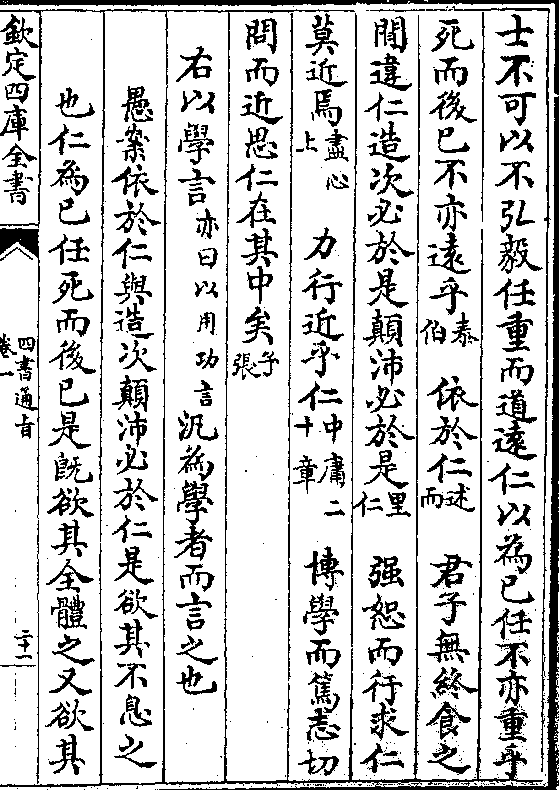 士不可以不弘毅任重而道遠仁以為已任不亦重乎
死而後已不亦遠乎泰伯 依於仁述而 君子無終食之
間違仁造次必於是顛沛必於是里仁 强恕而行求仁
莫近焉盡心上 力行近乎仁中庸二十章 博學而篤志切
問而近思仁在其中矣子張
右以學言亦曰以用功言汎為學者而言之也
愚案依於仁與造次顛沛必於仁是欲其不息之
也仁為已任死而後已是既欲其全體之又欲其
欽定四庫全書
四書通旨
卷一
二十一